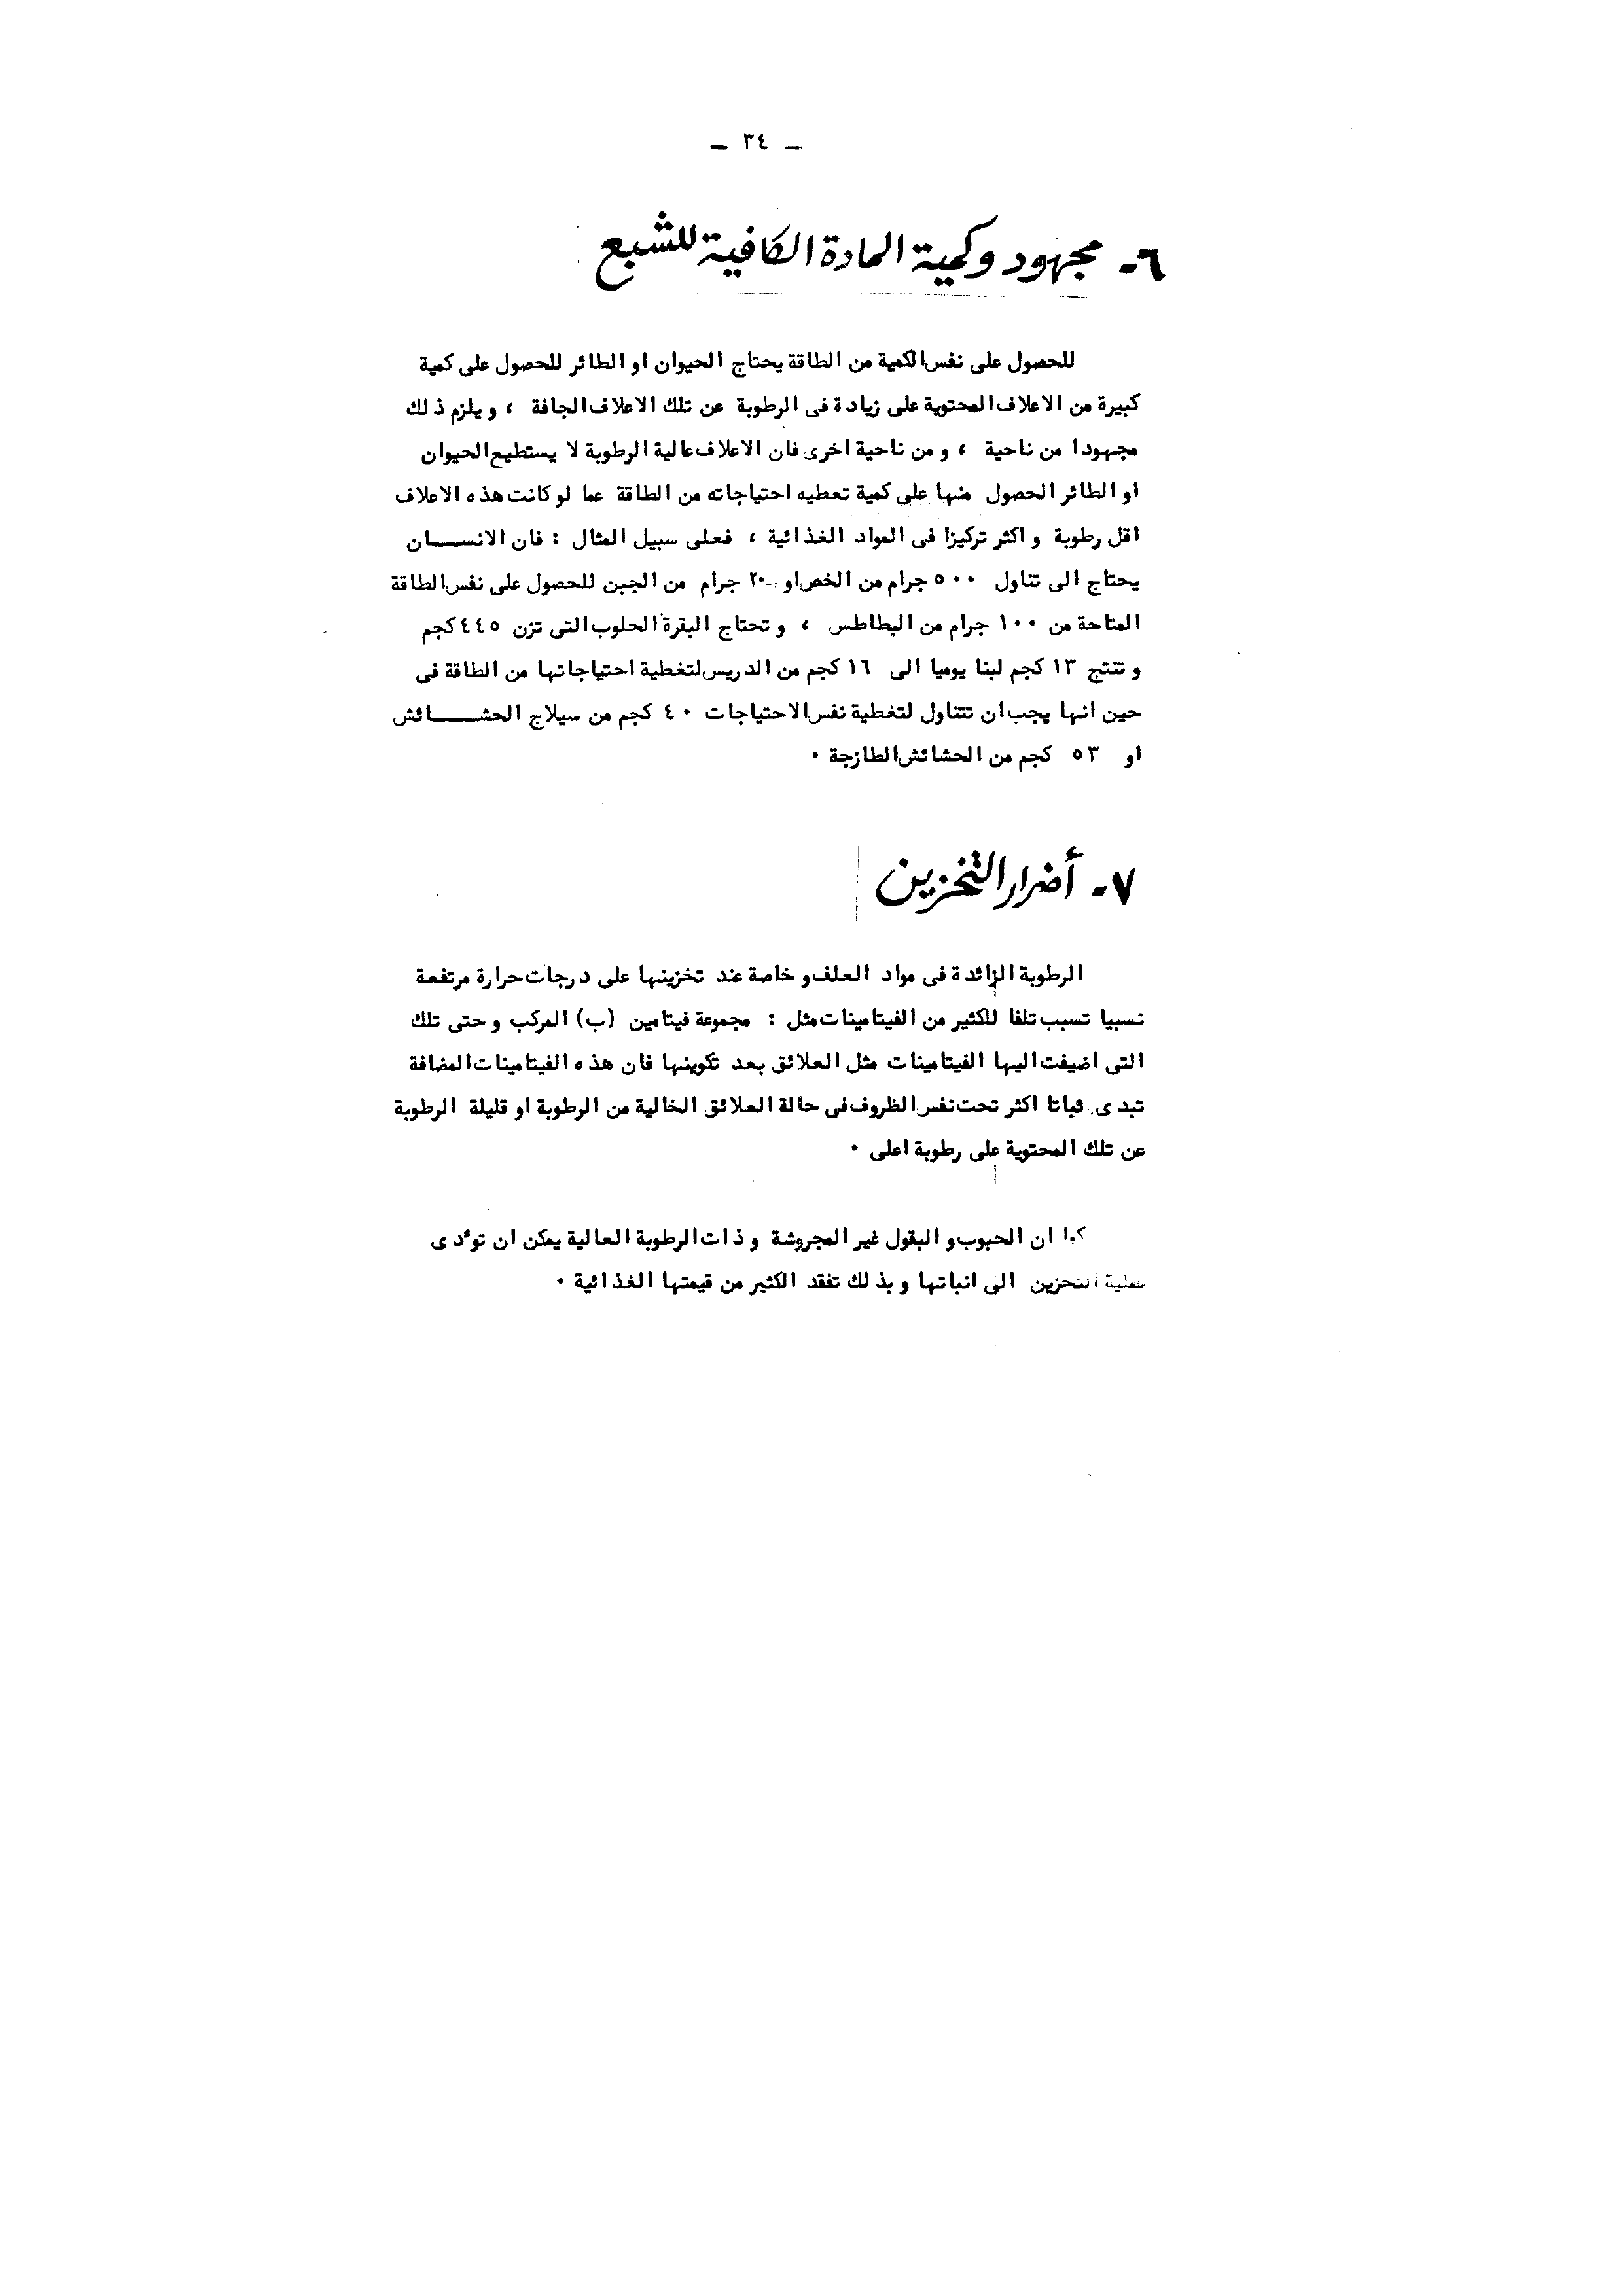 ـ ٣٤ ـ
٦ـ مجهود وكمية المادة الكافية للشبع
للحصول على نفس الكمية من الطاقة يحتاج الحيوان او الطائر للحصول على كمية
كبيرة من الاعلاف المحتوية على زيادة فى الرطوبة عن تلك الاعلاف الجافة ، ويلزم ذلك
مجهودا من ناحية ، ومن ناحية اخرى فان الاعلاف عالية الرطوبة لا يستطيع الحيوان
او الطائر الحصول منها على كمية تعطيه احتياجاته من الطاقة عما لو كانت هذه الاعلاف
اقل رطوبة واكثر تركيزا فى المواد الغذائية ، فعلى سبيل المثال : فان الانســـان
يحتاج الى تناول ٥٠٠ جرام من الخص او ٢٠ جرام من الجبن للحصول على نفس الطاقة
المتاحة من ١٠٠ جرام من البطاطس ، وتحتاج البقرة الحلوب التى تزن ٤٤٥ كجم
وتنتج ١٣ كجم لبنا يوميا الى ١٦ كجم من الدريس لتغطية احتياجاتها من الطاقة فى
حين انها يجب ان تتناول لتغطية نفس الاحتياجات ٤٠ كجم من سيلاج الحشـــائش
او ٥٣ كجم من الحشائش الطازجة ٠
٧ـ أضرار التخزين
الرطوبة الزائدة فى مواد العلف وخاصة عند تخزينها على درجات حرارة مرتفعة
نسبيا تسبب تلفا للكثير من الفيتامينات مثل : مجموعة فيتامين (ب) المركب وحتى تلك
التى اضيفت اليها الفيتامينات مثل العلائق بعد تكوينها فان هذه الفيتامينات المضافة
تبدى ثباتا اكثر تحت نفس الظروف فى حالة العلائق الخالية من الرطوبة او قليلة الرطوبة
عن تلك المحتوية على رطوبة اعلى ٠
كما ان الحبوب والبقول غير المجروشة وذات الرطوبة العالية يمكن ان تؤدى
عملية التخزين الى انباتها وبذلك تفقد الكثير من قيمتها الغذائية ٠